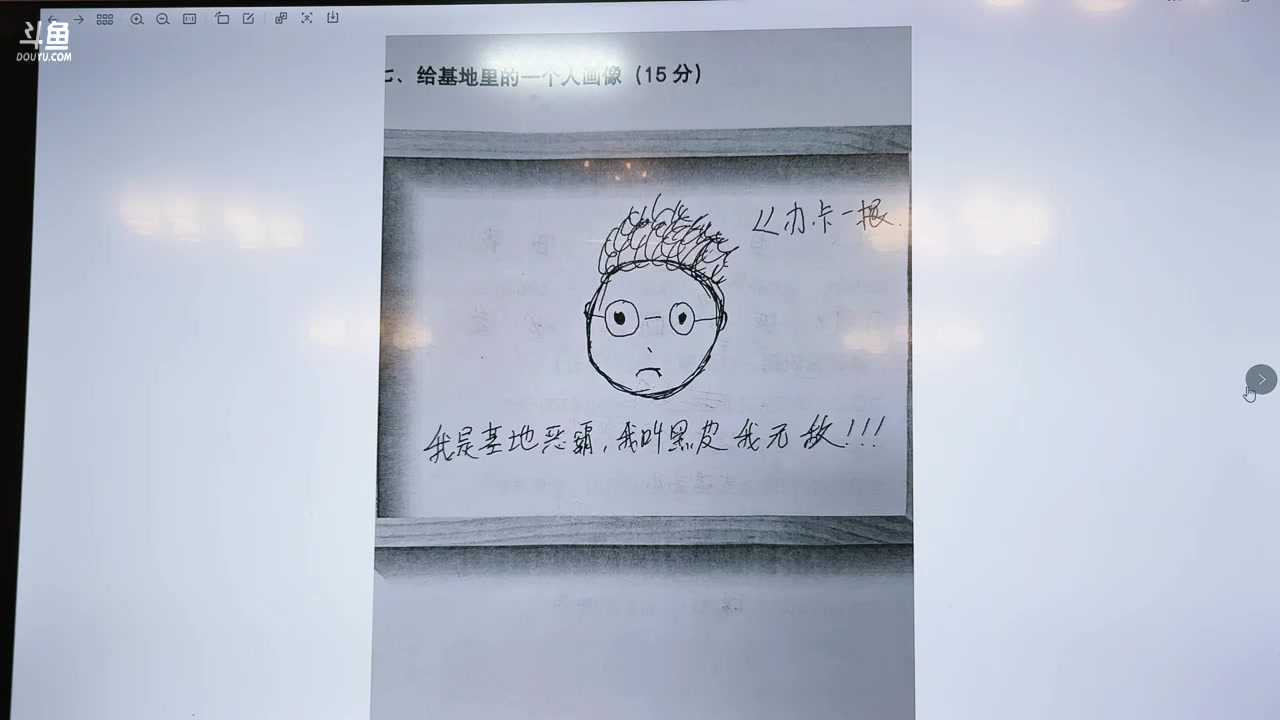 斗鱼
DOUYU.COM
七、给基地里的一个人画像（15分）
办卡一根.
我是基地恶霸,我叫黑皮我无敌!!!